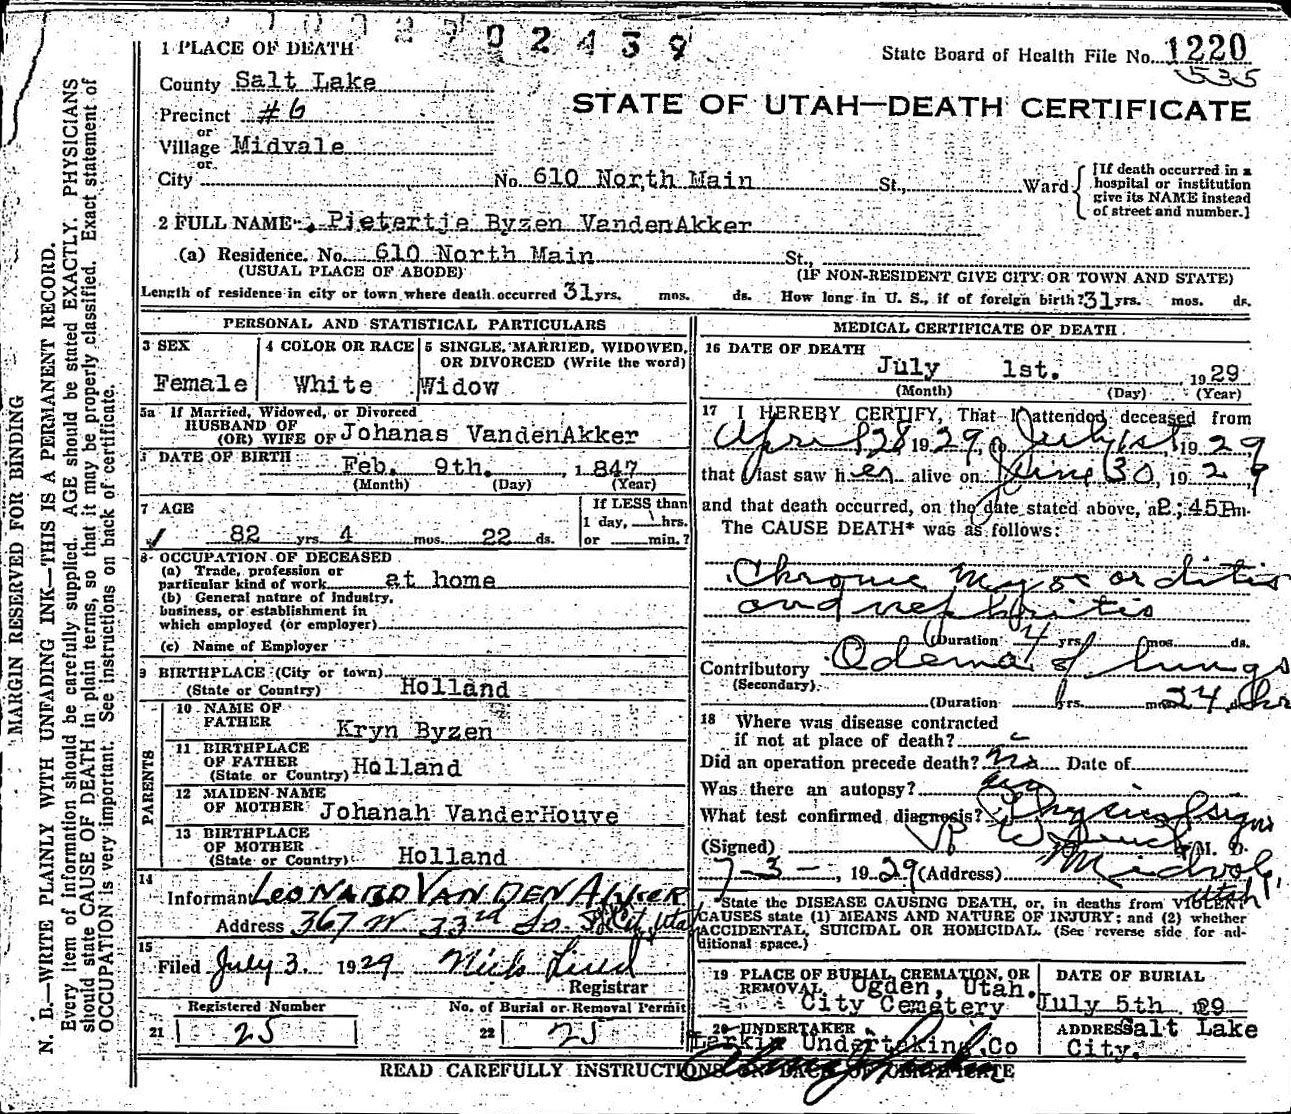 02439
State Board of Health File No. 1220
535
STATE OF UTAH—DEATH CERTIFICATE
1 PLACE OF DEATH
County Salt Lake
Precinct #6
or
Village Midvale
or
City No. 610 North Main St., Ward
[If death occurred in a
hospital or institution
give its NAME instead
of street and number.]
2 FULL NAME Pietertje Byzen VandenAkker
(a) Residence. No. 610 North Main St.,
(USUAL PLACE OF ABODE) (IF NON-RESIDENT GIVE CITY OR TOWN AND STATE)
Length of residence in city or town where death occurred 31 yrs. mos. ds. How long in U. S., if of foreign birth? 31 yrs. mos. ds.
PERSONAL AND STATISTICAL PARTICULARS
3 SEX
Female
4 COLOR OR RACE
White
5 SINGLE, MARRIED, WIDOWED,
OR DIVORCED (Write the word)
Widow
5a If Married, Widowed, or Divorced
HUSBAND OF
(OR) WIFE OF Johanas VandenAkker
DATE OF BIRTH Feb. 9th. , 1847
(Month) (Day) (Year)
7 AGE
82 yrs 4 mos. 22 ds.
If LESS than
1 day, hrs.
or min.?
8 OCCUPATION OF DECEASED
(a) Trade, profession or
particular kind of work at home
(b) General nature of Industry,
business, or establishment in
which employed (or employer)
(c) Name of Employer
9 BIRTHPLACE (City or town)
(State or Country) Holland
PARENTS
10 NAME OF
FATHER Kryn Byzen
11 BIRTHPLACE
OF FATHER
(State or Country) Holland
12 MAIDEN NAME
OF MOTHER Johanah VanderHouve
13 BIRTHPLACE
OF MOTHER
(State or Country) Holland
14
Informant LEONARD VAN DEN AKKER
Address 367 W. 33rd So. Utah
15
Filed July 3. 1929
Registrar
Registered Number
21 25
No. of Burial or Removal Permit
22 25
MEDICAL CERTIFICATE OF DEATH
16 DATE OF DEATH
July 1st. 1929
(Month) (Day) (Year)
17 I HEREBY CERTIFY, That I attended deceased from
April 28 1929, to July 1st 1929
that I last saw her alive on June 30, 1929
and that death occurred, on the date stated above, at 2:45 P.m.
The CAUSE DEATH* was as follows:
Chronic Myocarditis
and nephritis
(Duration 4 yrs. mos. ds.
Contributory Odema of lungs
(Secondary)
(Duration yrs. mos. 24 hr
18 Where was disease contracted
if not at place of death?
Did an operation precede death? No Date of
Was there an autopsy? no
What test confirmed diagnosis? Physical signs
(Signed) M. D.
7-3-, 1929 (Address) Midvale
Utah
*State the DISEASE CAUSING DEATH, or, in deaths from VIOLENT
CAUSES state (1) MEANS AND NATURE OF INJURY; and (2) whether
ACCIDENTAL, SUICIDAL OR HOMICIDAL. (See reverse side for ad-
ditional space.)
19 PLACE OF BURIAL, CREMATION, OR
REMOVAL Ogden, Utah.
City Cemetery
DATE OF BURIAL
July 5th 1929
20 UNDERTAKER
Larkin Undertaking Co
ADDRESS Salt Lake
City.
READ CAREFULLY INSTRUCTIONS ON BACK OF CERTIFICATE
MARGIN RESERVED FOR BINDING
N. B.—WRITE PLAINLY WITH UNFADING INK—THIS IS A PERMANENT RECORD.
Every item of information should be carefully supplied. AGE should be stated EXACTLY. PHYSICIANS
should state CAUSE OF DEATH in plain terms, so that it may be properly classified. Exact statement of
OCCUPATION is very important. See instructions on back of certificate.